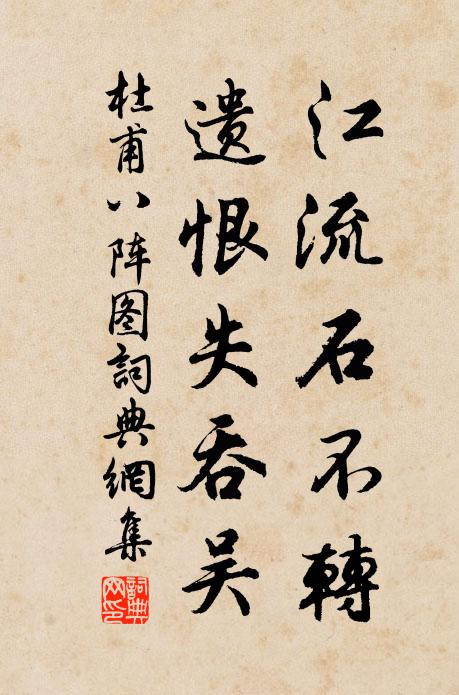 江流石不轉
遗恨失吞吴
杜甫八阵图詞典網集
詞典
网印